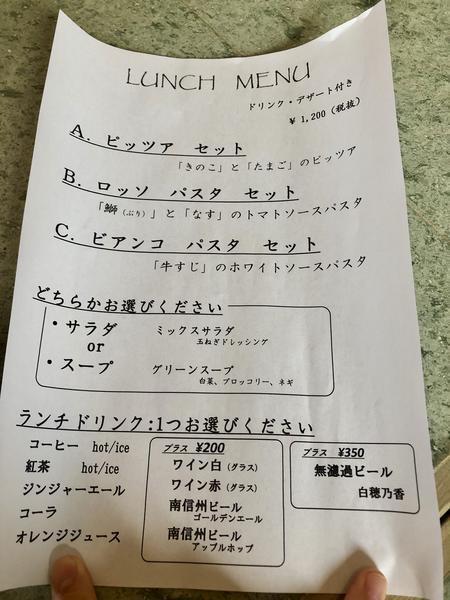 LUNCH MENU
ドリンク・デザート付き
¥1,200(税抜)
A. ピッツア セット
「きのこ」と「たまご」のピッツア
B. ロッソ パスタ セット
「鰤(ぶり)」と「なす」のトマトソースパスタ
C. ビアンコ パスタ セット
「牛すじ」のホワイトソースパスタ
どちらかお選びください
・サラダ ミックスサラダ
玉ねぎドレッシング
or
・スープ グリーンスープ
白菜、ブロッコリー、ネギ
ランチドリンク:1つお選びください
コーヒー hot/ice
紅茶 hot/ice
ジンジャーエール
コーラ
オレンジジュース
プラス ¥200
ワイン白(グラス)
ワイン赤(グラス)
南信州ビール
ゴールデンエール
南信州ビール
アップルホップ
プラス ¥350
無濾過ビール
白穂乃香